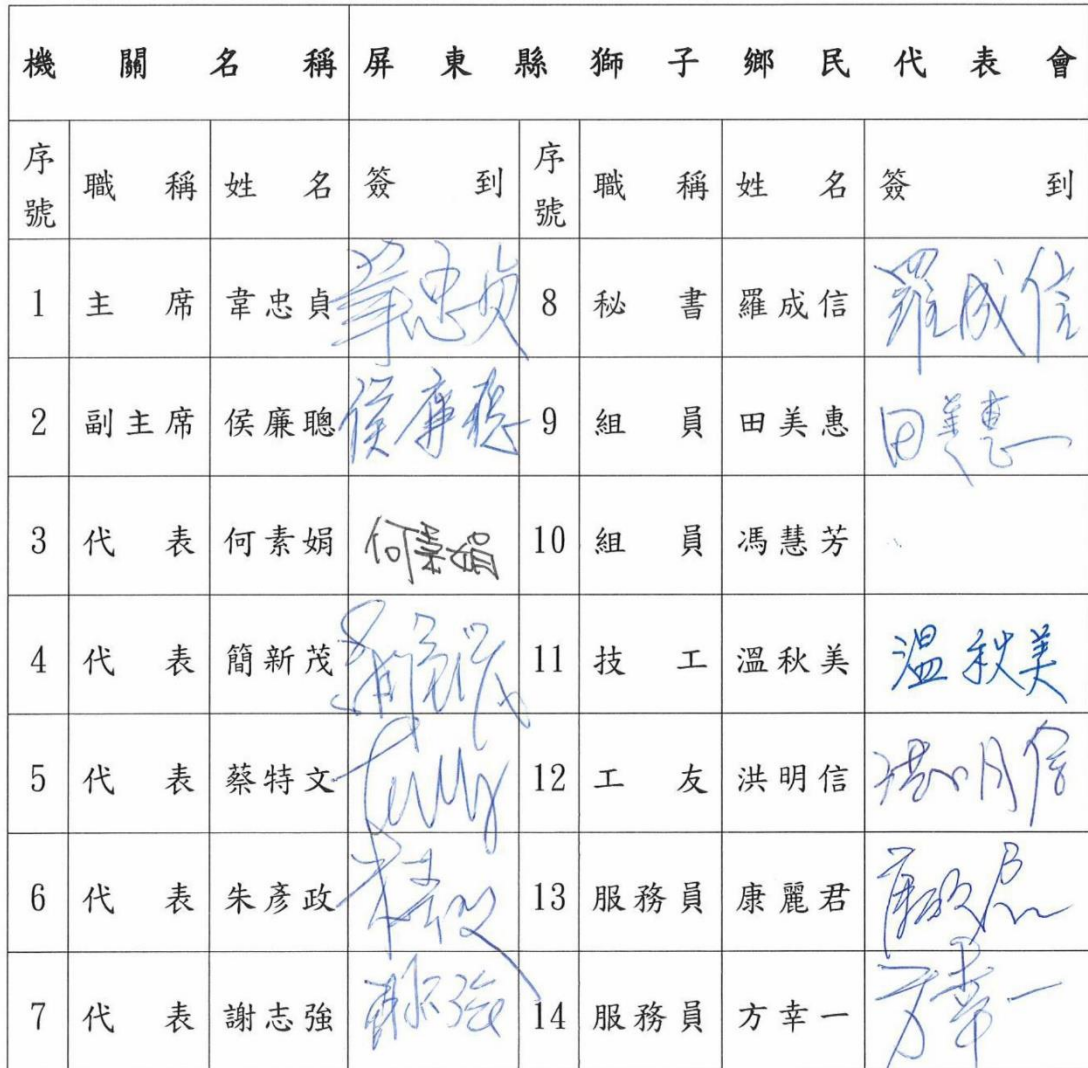 機關名稱 屏東縣獅子鄉民代表會
序號 職稱 姓名 簽到 序號 職稱 姓名 簽到
1 主席 韋忠貞 韋忠貞 8 秘書 羅成信 羅成信
2 副主席 侯廉聰 侯廉聰 9 組員 田美惠 田美惠
3 代表 何素娟 何素娟 10 組員 馮慧芳
4 代表 簡新茂 11 技工 溫秋美 溫秋美
5 代表 蔡特文 12 工友 洪明信 洪明信
6 代表 朱彥政 13 服務員 康麗君
7 代表 謝志強 14 服務員 方幸一 方幸一